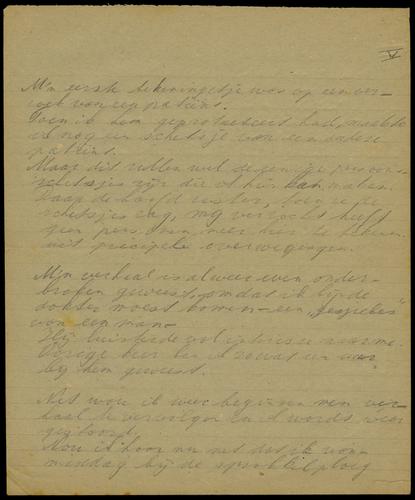 V
M'n eerste tekeningetje was op een ver-
zoek van een patiënt.
Toen ik hem geportretteerd had, maakte
ik nog een schetsje van een andere
patiënt.
Maar dit zullen wel de enige persoon-
schetsjes zijn die ik hier kan maken.
Daar de hoofdzuster, toen ze de
schetsjes zag, mij verzocht heeft
geen personen meer hier te tekenen
uit principiele overwegingen.
Mijn verhaal is alweer even onder-
broken geweest, omdat ik bij de
dokter moest komen – een "gesprekje"
van een man –
Hij luisterde vol interesse naar me.
Vorige keer ben ik zowat een uur
bij hem geweest.
Net wou ik weer beginnen mijn ver-
haal te vervolgen en ik word weer
gestoord.
Nou ik hoor nu net dat ik van-
middag bij de ploeg